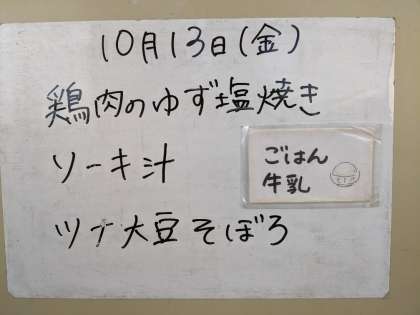 10月13日(金)
鶏肉のゆず塩焼き
ソーキ汁
ごはん
牛乳
ツナ大豆そぼろ